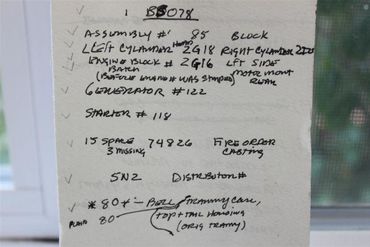 1 BS078
ASSEMBLY #' 85 BLOCK
LEFT CYLANDER HEAD 2G18 RIGHT CYLANDER
ENGINE BLOCK # 2G16 LEFT SIDE
BATCH MOTOR MONT
(BEFORE ENGINE # WAS STAMPED) REAR
GENERATOR # 122
STARTER # 118
15 SPACE 74826 FIRE ORDER
3 MISSING CASTING
5N2 DISTRIBUTOR #
* 80 # - BELL / TRANNY CASE,
PLAIN 80 (TOP + TAIL HOUSING
(ORIG TRANNY)